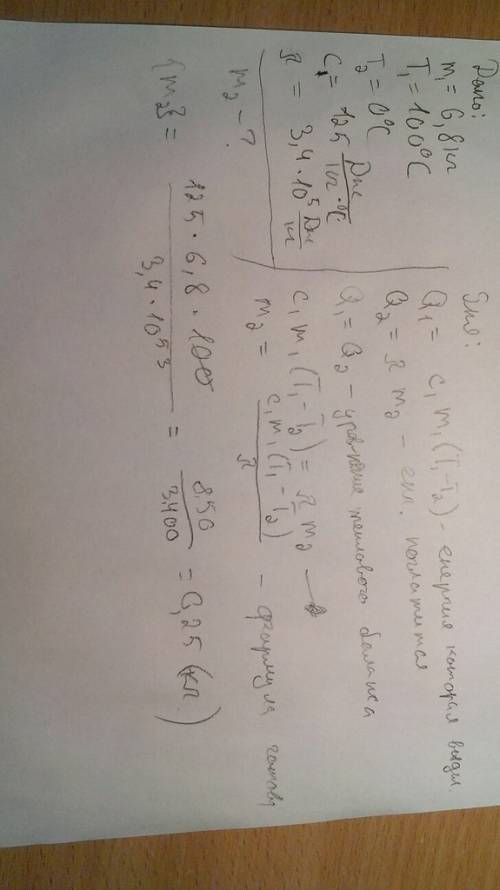 Дано:
m₁ = 6,8 кг
T₁ = 100°C
T₂ = 0°C
C₁ = 125 Дж/кг·°C
λ = 3,4·10⁵ Дж/кг
m₂ - ?
Q₁ = c₁ m₁ (T₁ - T₂) - енергия которая выдел.
Q₂ = λ m₂ - енл. поглатится
Q₁ = Q₂ - уравнение теплового баланса
c₁ m₁ (T₁ - T₂) = λ m₂ →
m₂ = c₁ m₁ (T₁ - T₂) / λ - формула готова
{m₂} = 125 · 6,8 · 100 / 3,4 · 10⁵ ³ = 850 / 3400 = 0,25 (кг.)